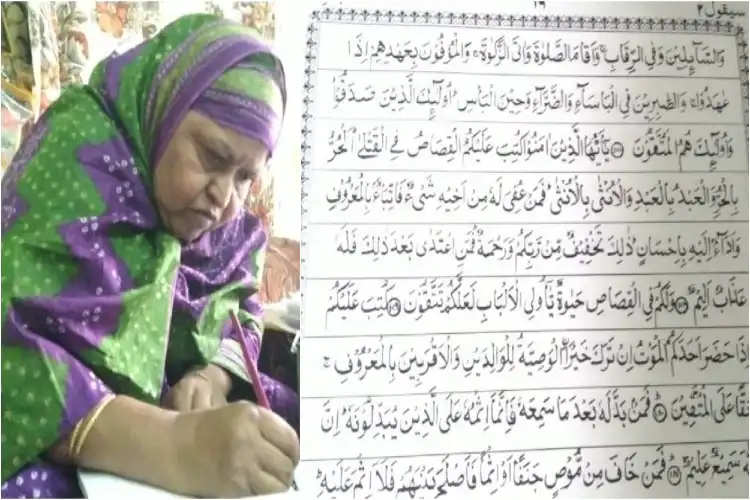 سيقول ٢ ١٦
وَالسَّآئِلِيْنَ وَفِي الرِّقَابِ وَاَقَامَ الصَّلٰوةَ وَاٰتَى الزَّكٰوةَ وَالْمُوْفُوْنَ بِعَهْدِهِمْ اِذَا
عٰهَدُوْا وَالصّٰبِرِيْنَ فِي الْبَاْسَآءِ وَالضَّرَّآءِ وَحِيْنَ الْبَاْسِ اُولٰٓئِكَ الَّذِيْنَ صَدَقُوْا
وَاُولٰٓئِكَ هُمُ الْمُتَّقُوْنَ يٰٓاَيُّهَا الَّذِيْنَ اٰمَنُوْا كُتِبَ عَلَيْكُمُ الْقِصَاصُ فِي الْقَتْلٰى اَلْحُرُّ
بِالْحُرِّ وَالْعَبْدُ بِالْعَبْدِ وَالْاُنْثٰى بِالْاُنْثٰى فَمَنْ عُفِيَ لَهٗ مِنْ اَخِيْهِ شَيْءٌ فَاتِّبَاعٌ بِالْمَعْرُوْفِ
وَاَدَآءٌ اِلَيْهِ بِاِحْسَانٍ ذٰلِكَ تَخْفِيْفٌ مِّنْ رَّبِّكُمْ وَرَحْمَةٌ فَمَنِ اعْتَدٰى بَعْدَ ذٰلِكَ فَلَهٗ
عَذَابٌ اَلِيْمٌ وَلَكُمْ فِي الْقِصَاصِ حَيٰوةٌ يّٰٓاُولِي الْاَلْبَابِ لَعَلَّكُمْ تَتَّقُوْنَ كُتِبَ عَلَيْكُمْ
اِذَا حَضَرَ اَحَدَكُمُ الْمَوْتُ اِنْ تَرَكَ خَيْرًا الْوَصِيَّةُ لِلْوَالِدَيْنِ وَالْاَقْرَبِيْنَ بِالْمَعْرُوْفِ
حَقًّا عَلَى الْمُتَّقِيْنَ فَمَنْ بَدَّلَهٗ بَعْدَ مَا سَمِعَهٗ فَاِنَّمَا اِثْمُهٗ عَلَى الَّذِيْنَ يُبَدِّلُوْنَهٗ اِنَّ
سَمِيْعٌ عَلِيْمٌ فَمَنْ خَافَ مِنْ مُّوْصٍ جَنَفًا اَوْ اِثْمًا فَاَصْلَحَ بَيْنَهُمْ فَلَا اِثْمَ عَلَيْهِ